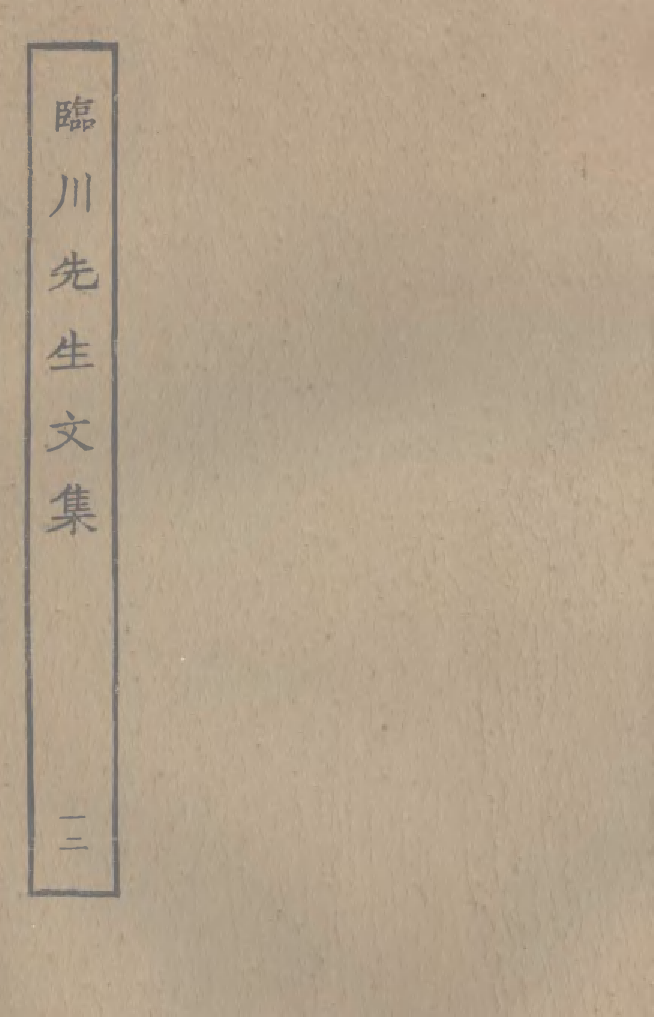 臨川先生文集
一二